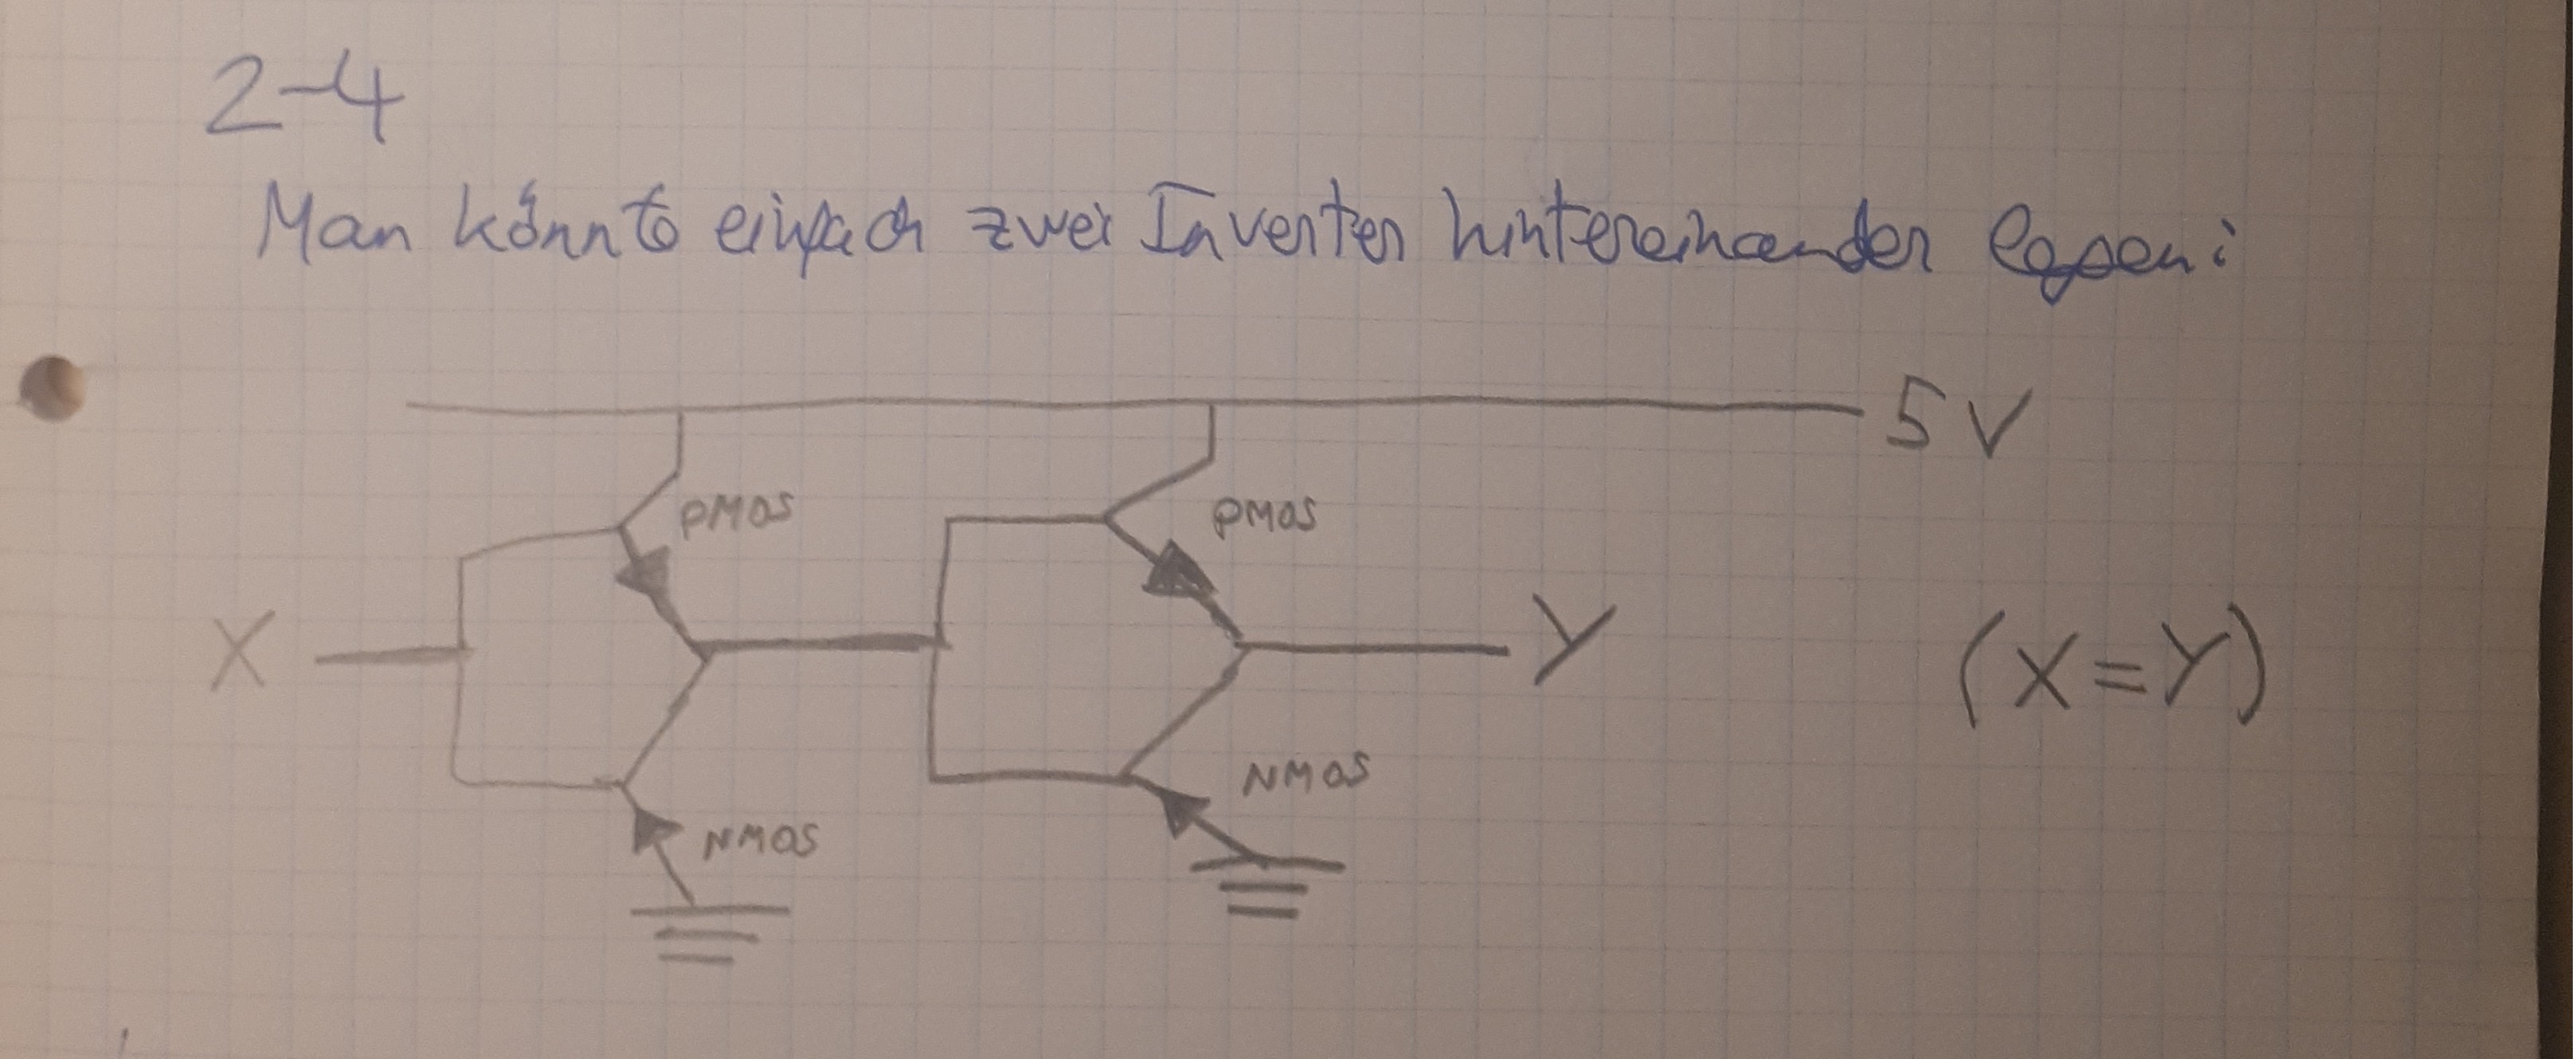 2-4
Man könnte einfach zwei Inverter hintereinander legen:
5V
PMOS PMOS
X Y (X=Y)
NMOS
NMOS